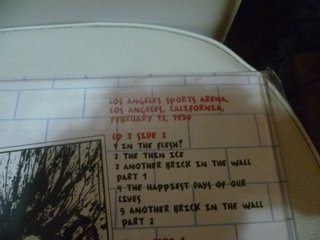 LOS ANGELES SPORTS ARENA,
LOS ANGELES, CALIFORNIA,
FEBRUARY 13, 1980
LP 3 SIDE 2
1 IN THE FLESH?
2 THE THIN ICE
3 ANOTHER BRICK IN THE WALL
PART 1
4 THE HAPPIEST DAYS OF OUR
LIVES
5 ANOTHER BRICK IN THE WALL
PART 2